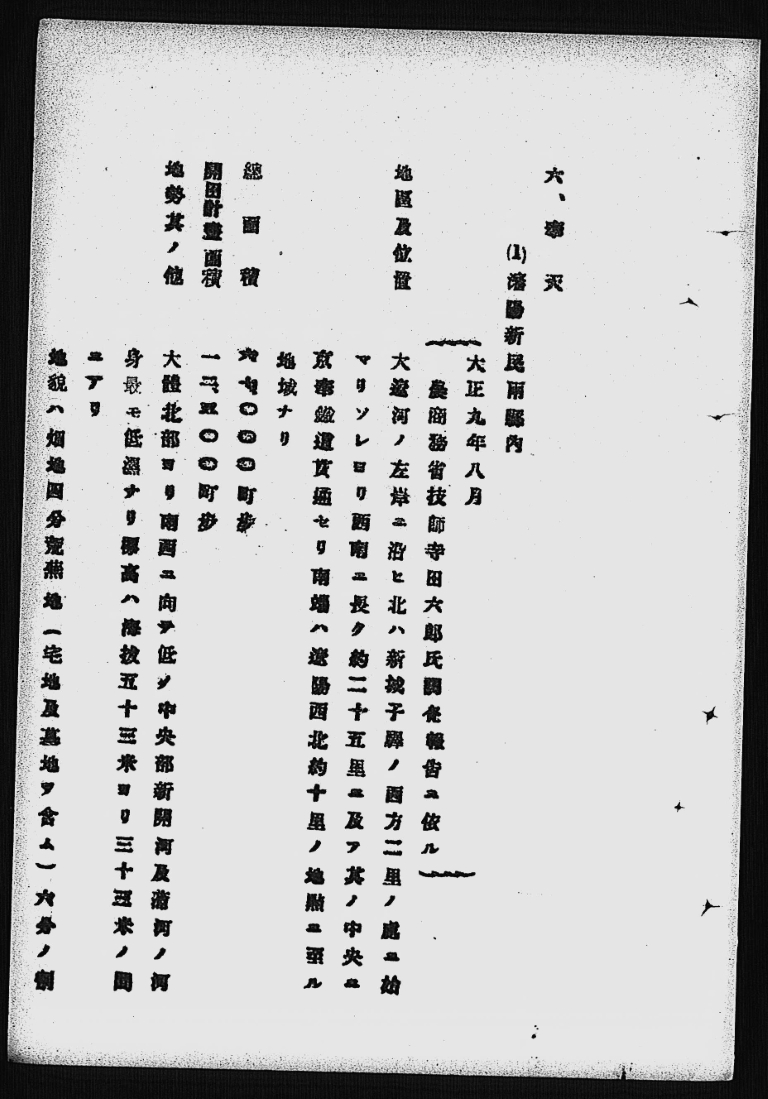 六、奉天
(1)瀋陽新民兩縣內
大正九年八月
農商務省技師寺田六郎氏調査報告ニ依ル
地區及位置
大遼河ノ左岸ニ沿ヒ北ハ新城子驛ノ西方二里ノ處ニ始
マリソレヨリ西南ニ長ク約二十五里ニ及ブ其ノ中央ニ
京奉鐵道貫通セリ南端ハ遼陽西北約十里ノ地點ニ至ル
地域ナリ
總面積
六七、〇〇〇町步
開田計畫面積
一二、五〇〇町步
地勢其ノ他
大體北部ヨリ南西ニ向ヲ低ク中央部新開河及蒲河ノ河
身最モ低濕ナリ標高ハ海拔五十三米ヨリ三十三米ノ間
ニアリ
地貌ハ畑地四分荒蕪地(宅地及墓地ヲ含ム)六分ノ割